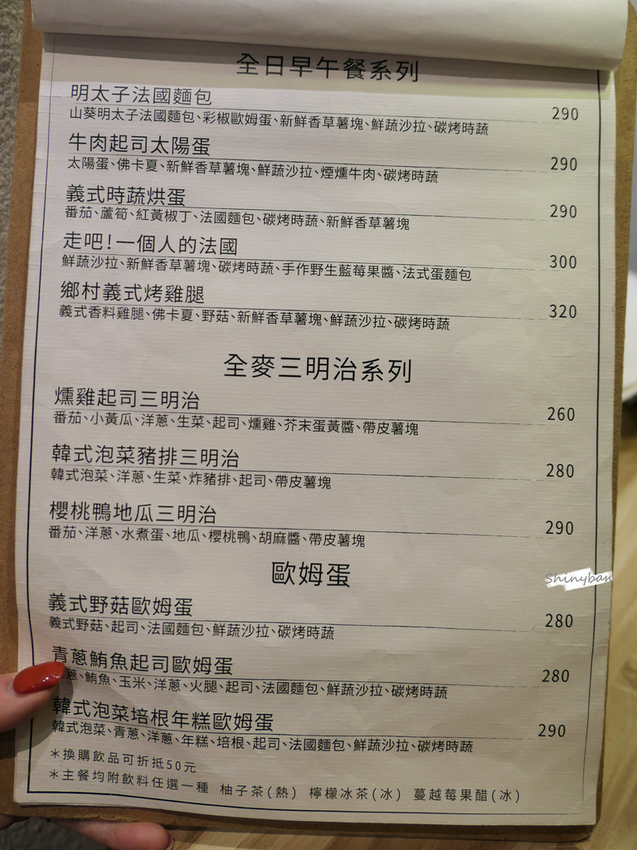 全日早午餐系列
明太子法國麵包 290
山葵明太子法國麵包、彩椒歐姆蛋、新鮮香草薯塊、鮮蔬沙拉、碳烤時蔬
牛肉起司太陽蛋 290
太陽蛋、佛卡夏、新鮮香草薯塊、鮮蔬沙拉、煙燻牛肉、碳烤時蔬
義式時蔬烘蛋 290
番茄、蘆筍、紅黃椒丁、法國麵包、碳烤時蔬、新鮮香草薯塊
走吧!一個人的法國 300
鮮蔬沙拉、新鮮香草薯塊、碳烤時蔬、手作野生藍莓果醬、法式蛋麵包
鄉村義式烤雞腿 320
義式香料雞腿、佛卡夏、野菇、新鮮香草薯塊、鮮蔬沙拉、碳烤時蔬
全麥三明治系列
燻雞起司三明治 260
番茄、小黃瓜、洋蔥、生菜、起司、燻雞、芥末蛋黃醬、帶皮薯塊
韓式泡菜豬排三明治 280
韓式泡菜、洋蔥、生菜、炸豬排、起司、帶皮薯塊
櫻桃鴨地瓜三明治 290
番茄、洋蔥、水煮蛋、地瓜、櫻桃鴨、胡麻醬、帶皮薯塊
歐姆蛋
Shinyban
義式野菇歐姆蛋 280
義式野菇、起司、法國麵包、鮮蔬沙拉、碳烤時蔬
青蔥鮪魚起司歐姆蛋 280
蔥、鮪魚、玉米、洋蔥、火腿、起司、法國麵包、鮮蔬沙拉、碳烤時蔬
韓式泡菜培根年糕歐姆蛋 290
韓式泡菜、青蔥、洋蔥、年糕、培根、起司、法國麵包、鮮蔬沙拉、碳烤時蔬
＊換購飲品可折抵50元
＊主餐均附飲料任選一種 柚子茶(熱) 檸檬冰茶(冰) 蔓越莓果醋(冰)